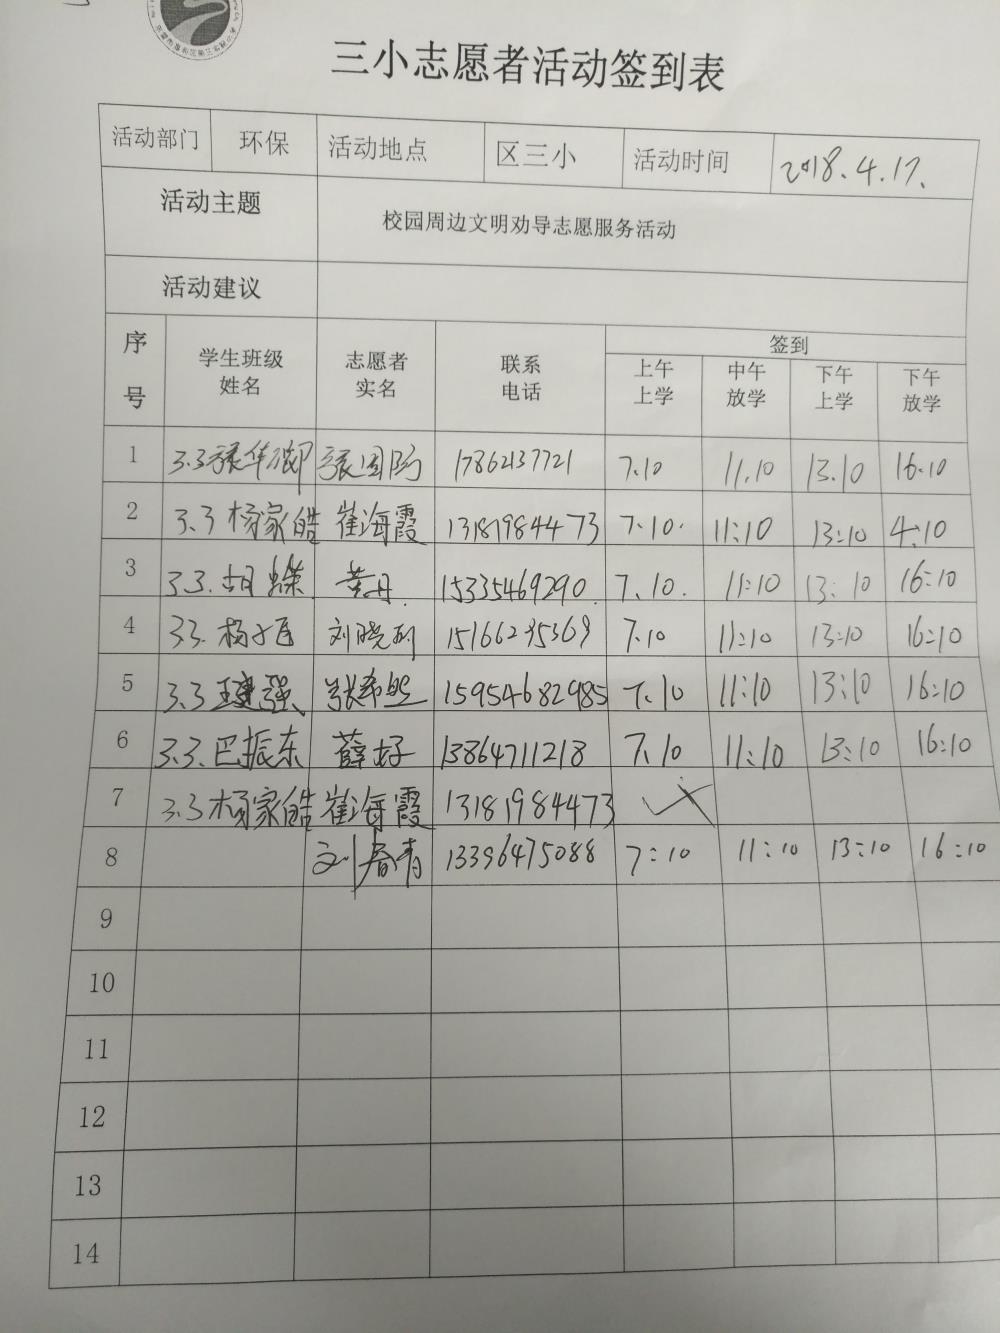 三小志愿者活动签到表
活动部门 环保 活动地点 区三小 活动时间 2018.4.17.
活动主题 校园周边文明劝导志愿服务活动
活动建议
序号 学生班级姓名 志愿者实名 联系电话 签到
上午上学 中午放学 下午上学 下午放学
1 3.3 张国防 17862137721 7.10 11.10 13.10 16.10
2 3.3杨家皓 崔海霞 13181984473 7.10. 11:10 13:10 4:10
3 3.3.胡蝶 黄丹 15335469290 7.10. 11:10 13:10 16:10
4 3.3.杨 刘晓利 15166295369 7.10 11:10 13:10 16:10
5 3.3王建强 张希 15954682985 7.10 11:10 13:10 16:10
6 3.3.巴振东 薛好 13864711218 7.10 11:10 13:10 16:10
7 3.3杨家皓 崔海霞 13181984473
8 刘春青 13396475088 7:10 11:10 13:10 16:10
9
10
11
12
13
14